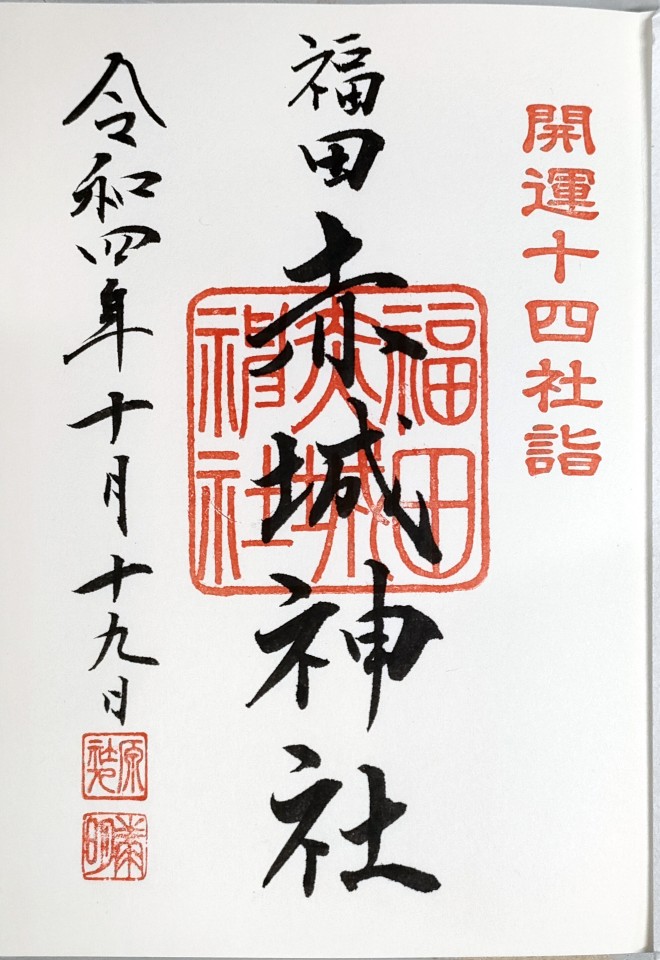 開運十四社詣
福田赤城神社
福田
赤城
神社
令和四年十月十九日